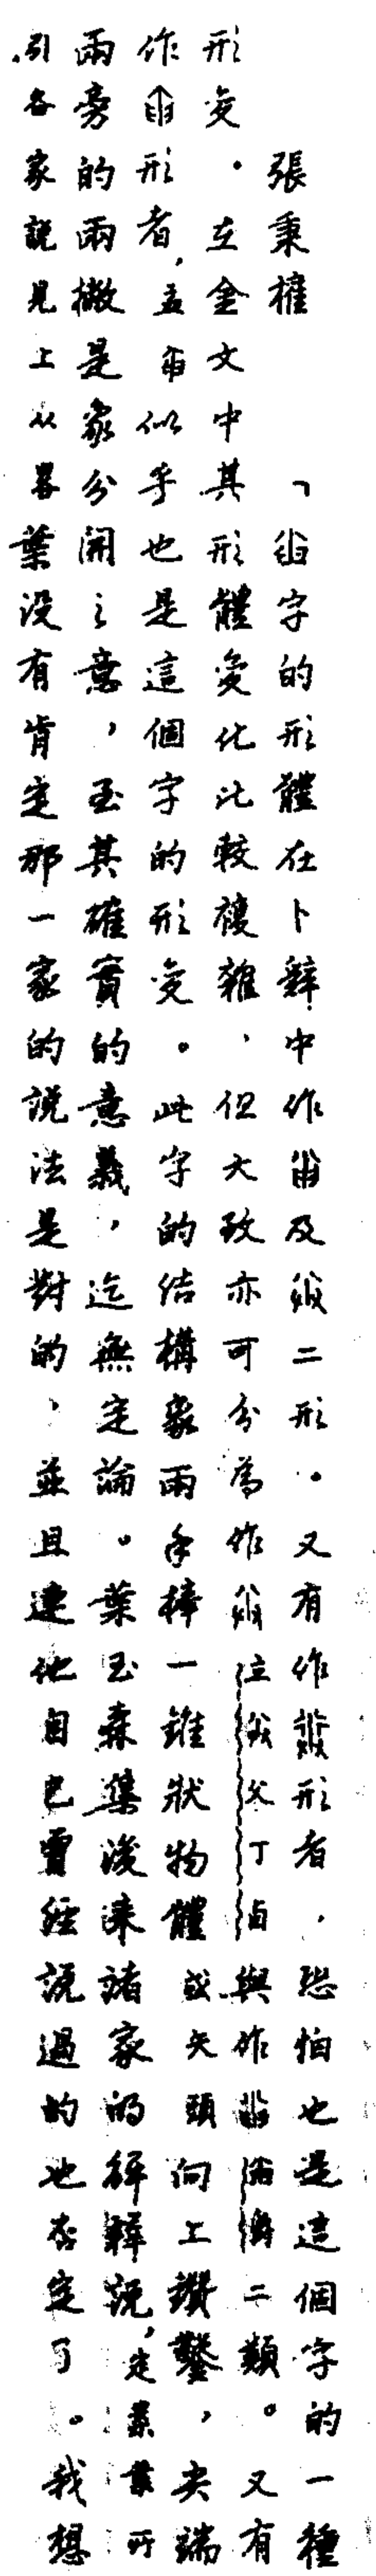 張秉權　「字的形體在卜辭中作及二形。又有作形者，恐怕也是這個字的一種
形變。在金文中其形體變化比較複雜，但大致亦可分為作父丁卣與作二類。又有
作形者，孟似乎也是這個字的形變。此字的结構象兩手捧一錐狀物體或矢頭向上鑽鑿，尖端
兩旁的兩撇是象分開之意，至其確實的意義，迄無定論。葉玉森集後來諸家的解釋說，定案葉所
引各家說見上从畧葉没有肯定那一家的說法是對的，並且連他自己曾經說過的也否定了。我想